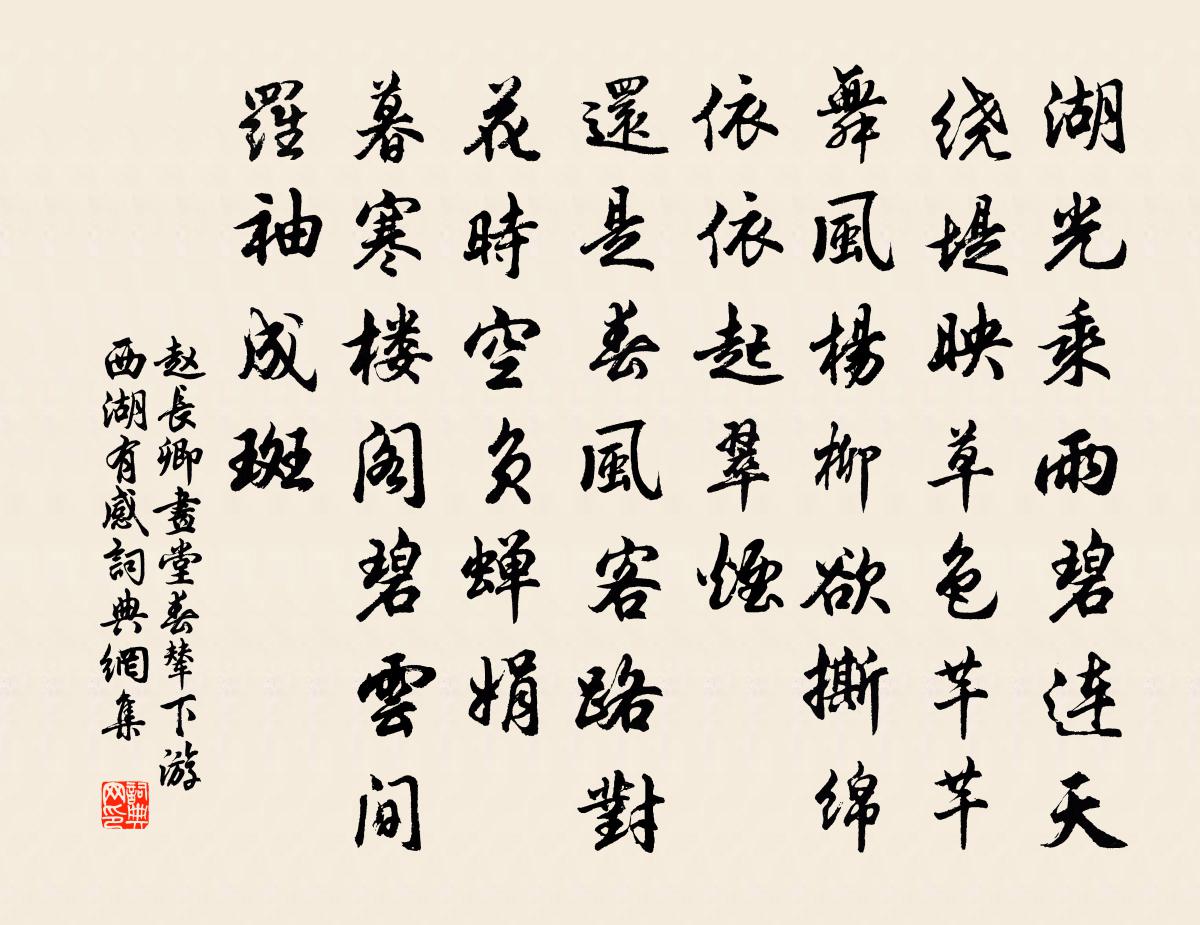 湖光乘雨碧连天
绕堤映草色芊芊
舞風楊柳欲撕绵
依依起翠煙
還是春風客路對
花時空负蝉娟
暮寒楼阁碧雲间
羅袖成斑
赵長卿畫堂春辇下游
西湖有感詞典網集
詞典网印